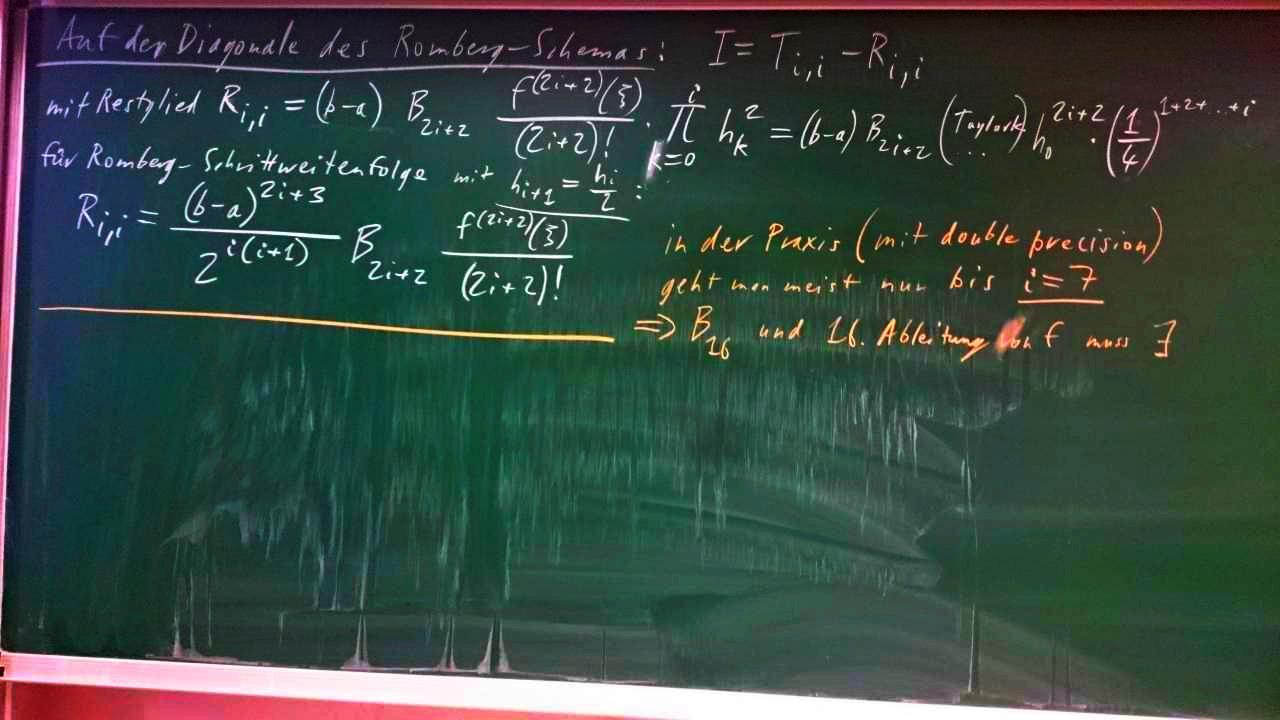 Auf der Diagonale des Romberg-Schemas: I = T_{i,i} - R_{i,i}
mit Restglied R_{i,i} = (b-a) B_{2i+2} \frac{f^{(2i+2)}(ξ)}{(2i+2)!} · \prod_{k=0}^{i} h_k^2 = (b-a) B_{2i+2} (Taylork ...) h_0^{2i+2} · (\frac{1}{4})^{1+2+...+i}
für Romberg-Schrittweitenfolge mit h_{i+1} = \frac{h_i}{2} :
R_{i,i} = \frac{(b-a)^{2i+3}}{2^{i(i+1)}} B_{2i+2} \frac{f^{(2i+2)}(ξ)}{(2i+2)!}
in der Praxis (mit double precision)
geht man meist nur bis i=7
=> B_{16} und 16. Ableitung von f muss ∃